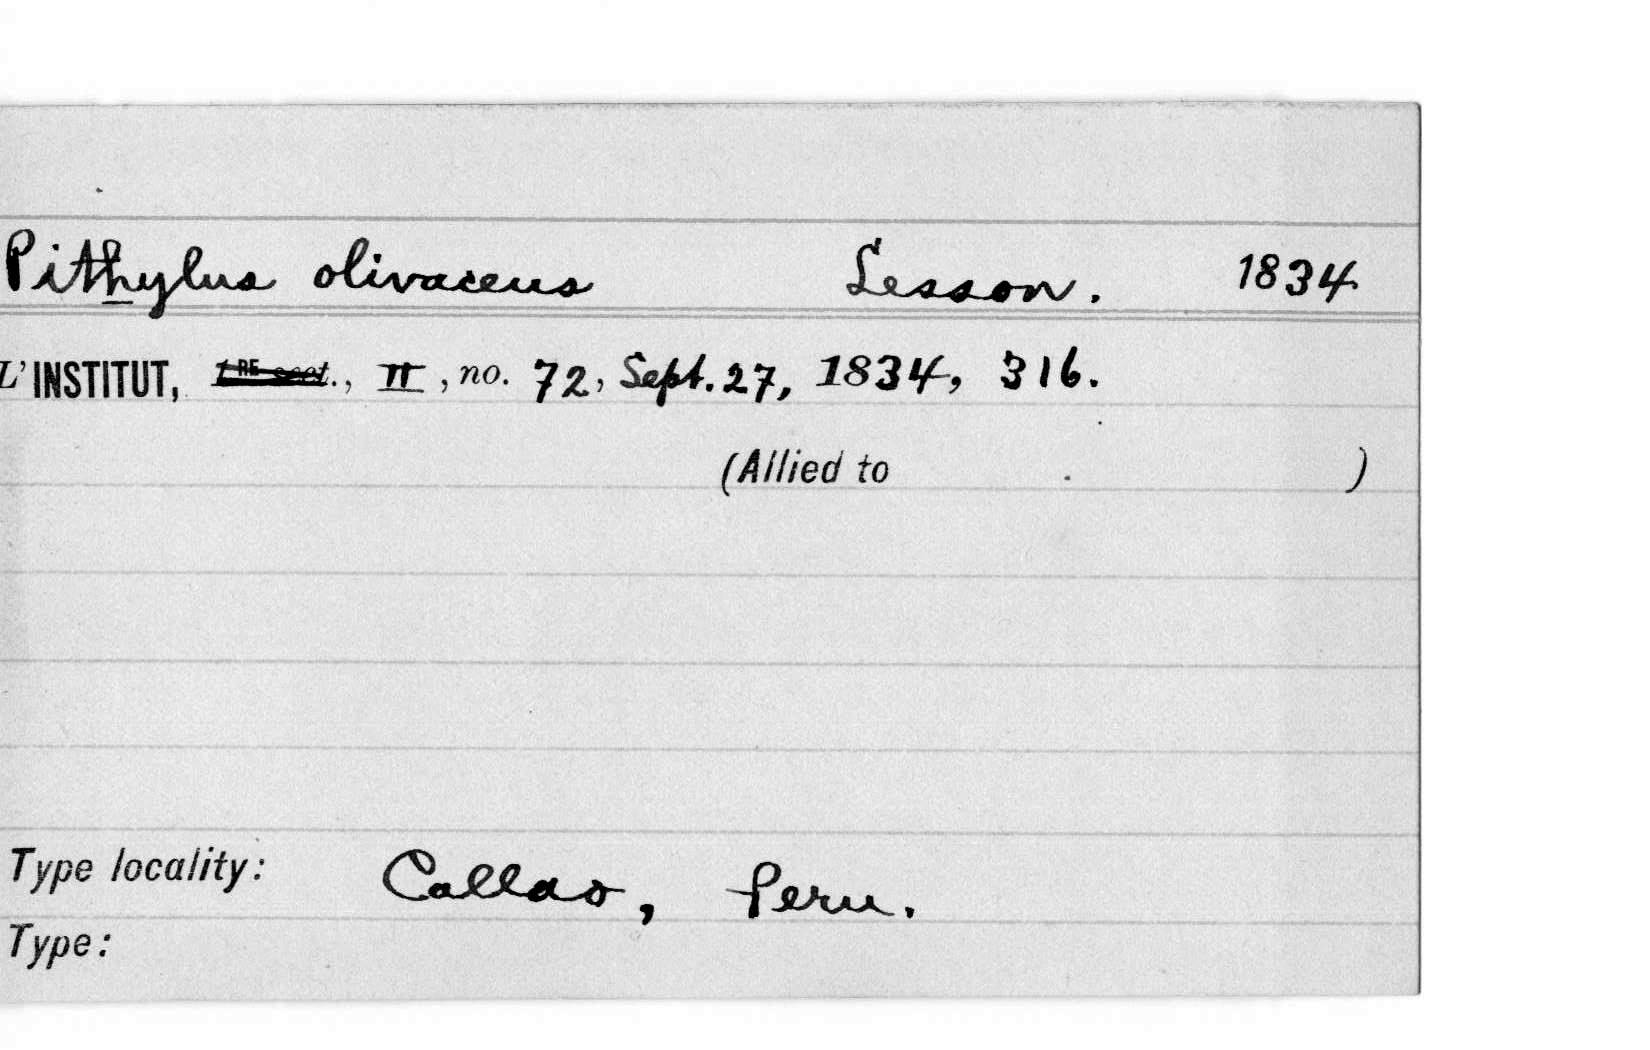 Pithylus olivaceus Lesson. 1834
L'INSTITUT, 1RE sect., II, no. 72, Sept. 27, 1834, 316.
(Allied to )
Type locality: Callao, Peru.
Type: